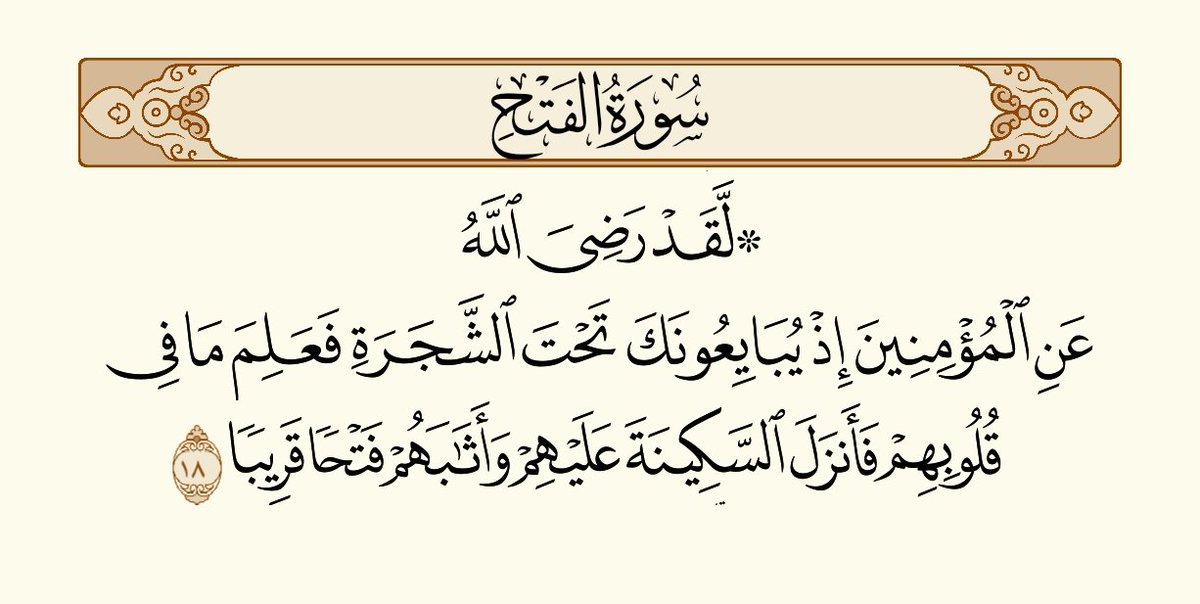 سُورَةُ الفَتْحِ
۞لَّقَدْ رَضِىَ ٱللَّهُ
عَنِ ٱلْمُؤْمِنِينَ إِذْ يُبَايِعُونَكَ تَحْتَ ٱلشَّجَرَةِ فَعَلِمَ مَا فِى
قُلُوبِهِمْ فَأَنزَلَ ٱلسَّكِينَةَ عَلَيْهِمْ وَأَثَٰبَهُمْ فَتْحًا قَرِيبًا ١٨